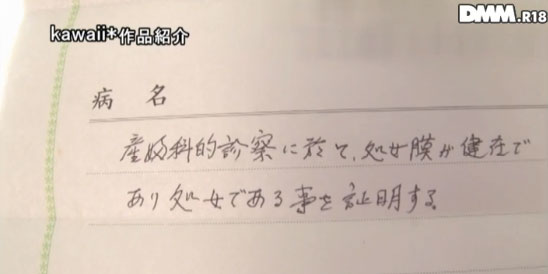 DMM.R18
kawaii*作品紹介
病名
産婦科的診察に於て、処女膜が健在で
あり処女である事を証明する